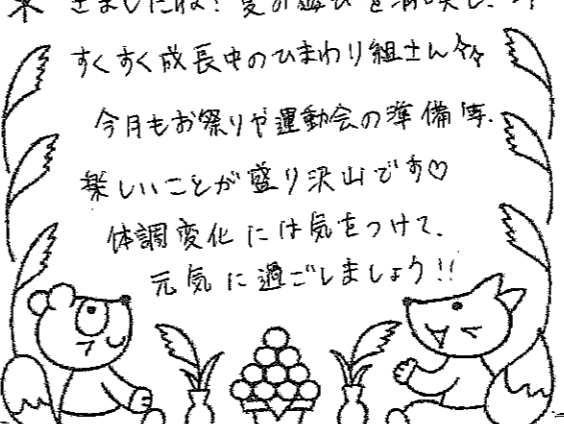 きましたね！夏の遊びを満喫し、
すくすく成長中のひまわり組さん
今月もお祭りや運動会の準備等、
楽しいことが盛り沢山です♡
体調変化には気をつけて、
元気に過ごしましょう!!